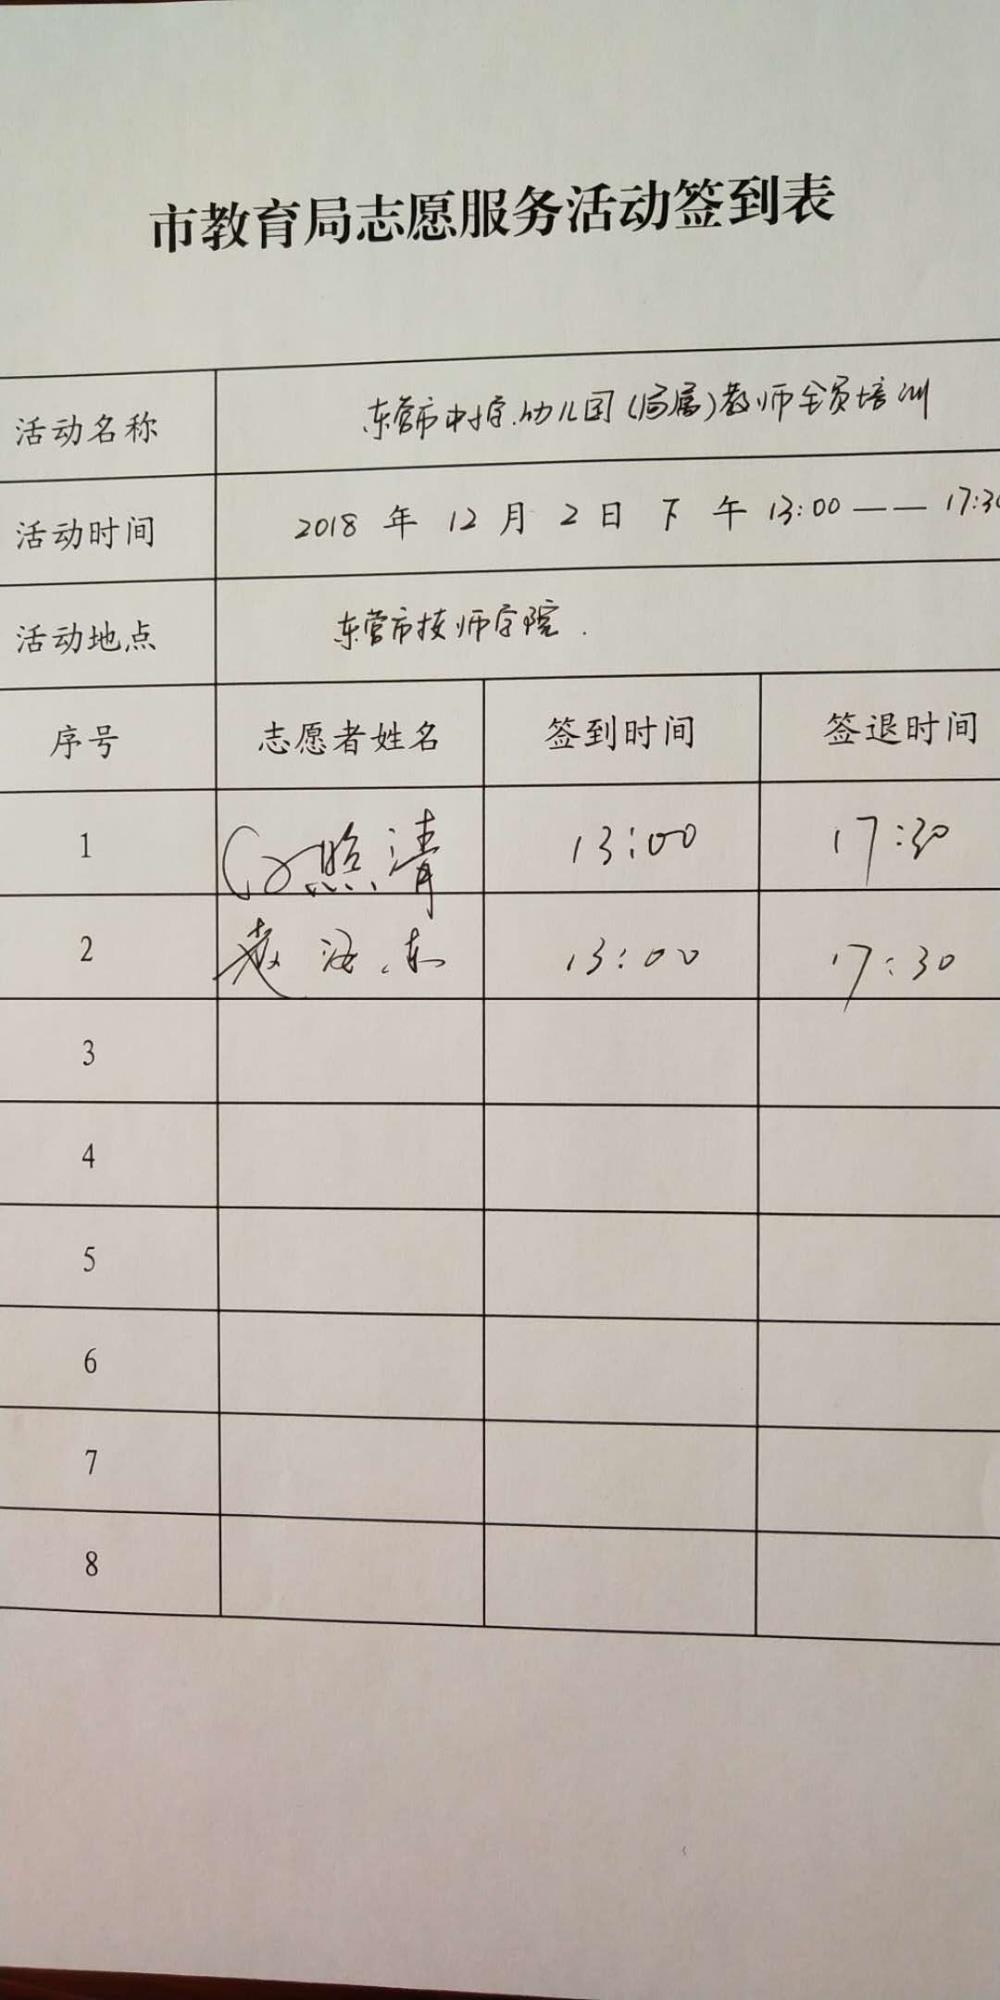 市教育局志愿服务活动签到表
活动名称 东营市中学.幼儿园(局属)教师全员培训
活动时间 2018 年 12 月 2 日 下 午 13:00 —— 17:30
活动地点 东营市技师学院.
序号 志愿者姓名 签到时间 签退时间
1 照清 13:00 17:30
2 袁海东 13:00 17:30
3
4
5
6
7
8